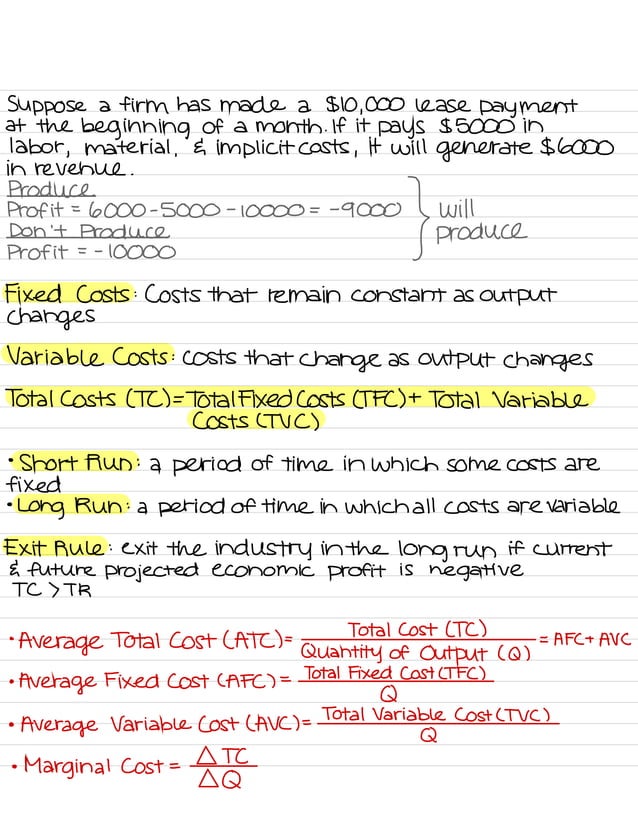 Suppose a firm has made a $10,000 lease payment
at the beginning of a month. If it pays $5000 in
labor, material, & implicit costs, it will generate $6000
in revenue.
Produce
Profit = 6000-5000-10000 = -9000
Don't Produce
Profit = -10000
will
produce
Fixed Costs: Costs that remain constant as output
changes
Variable Costs: costs that change as output changes
Total Costs (TC)=Total Fixed Costs (TFC)+ Total Variable
Costs (TVC)
• Short Run: a period of time in which some costs are
fixed
• Long Run: a period of time in which all costs are variable
Exit Rule: exit the industry in the long run if current
& future projected economic profit is negative
TC > TR
• Average Total Cost (ATC)= Total Cost (TC) / Quantity of Output (Q) = AFC+ AVC
• Average Fixed Cost (AFC)= Total Fixed Cost (TFC) / Q
• Average Variable Cost (AVC)= Total Variable Cost (TVC) / Q
• Marginal Cost = △TC / △Q